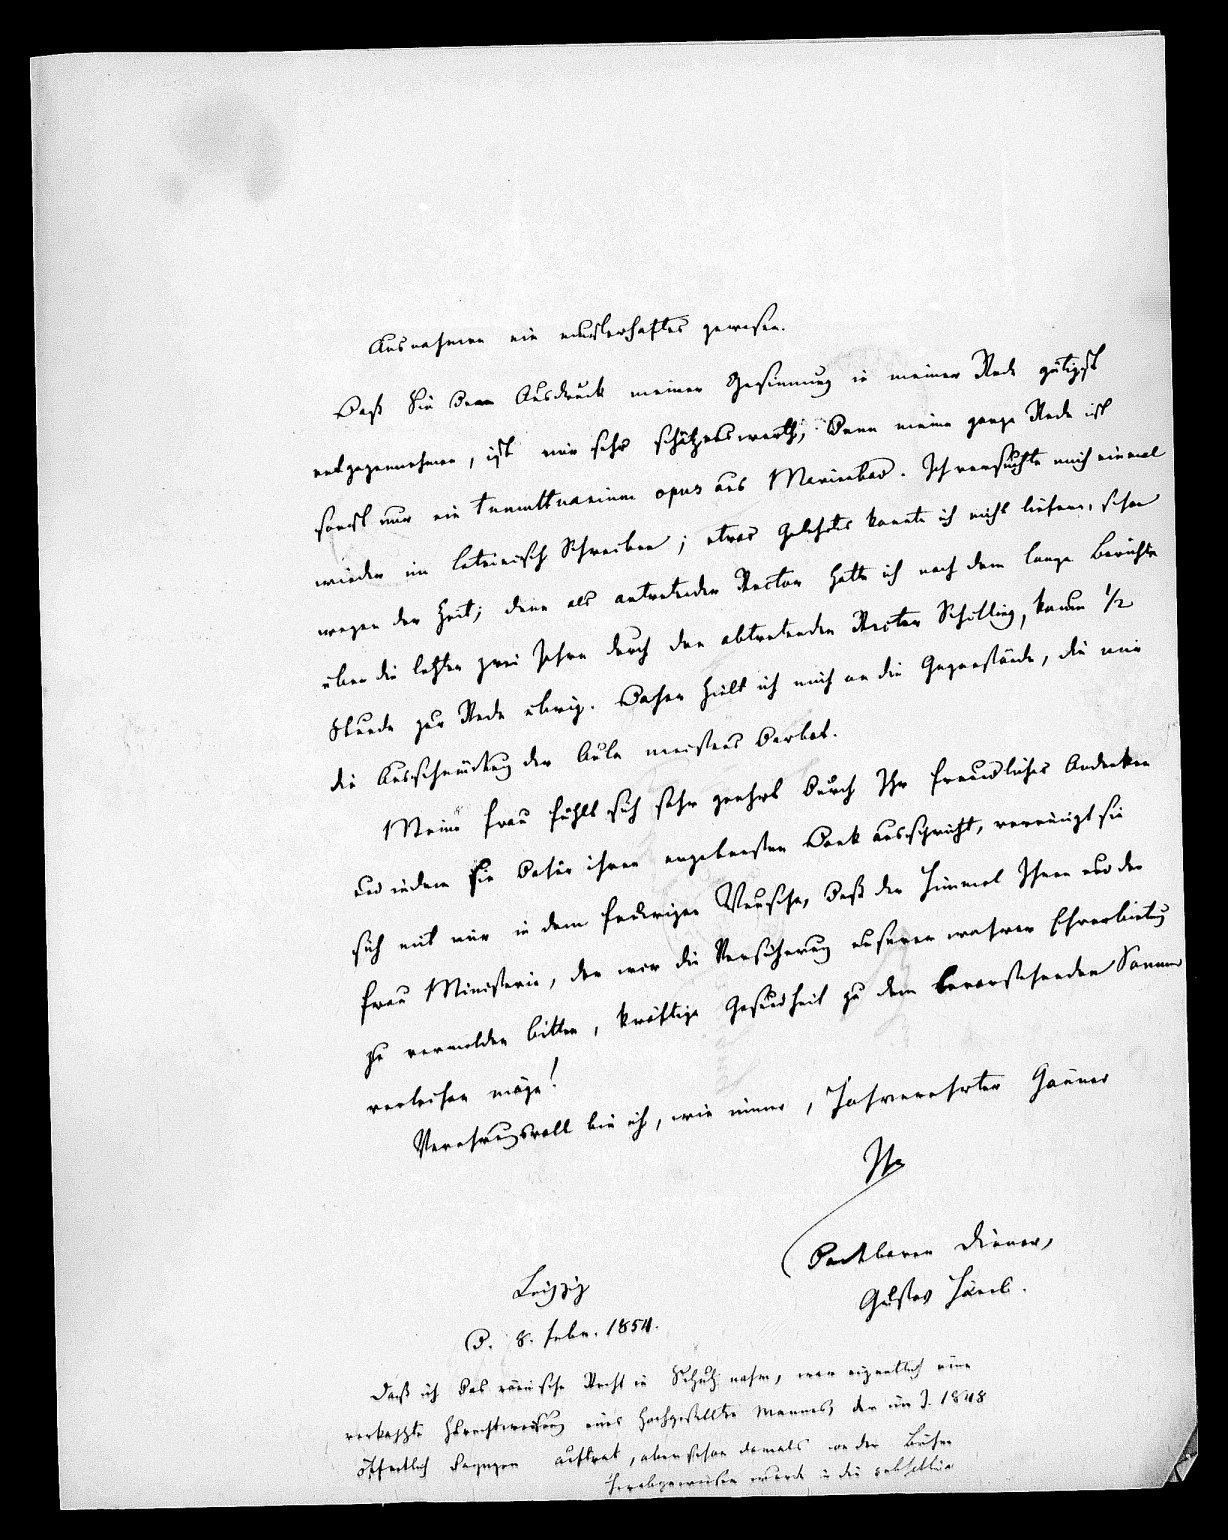 Ausnahmen ein musterhaftes gewesen.
Daß Sie den Ausdruck meiner Gesinnung in meiner Rede gütigst
entgegennehmen, ist mir sehr schätzenswerth, denn meine ganze Rede ist
sonst nur ein tumultuarium opus aus Marienbad. Ich versuchte mich einmal
wieder im lateinisch Schreiben; etwas Gelehrtes konnte ich nicht liefern, schon
wegen der Zeit; denn als antretender Rector hatte ich nach dem langen Berichte
über die letzten zwei Jahre durch den abtretenden Rector Schilling, kaum 1/2
Stunde zur Rede übrig. Daher hielt ich mich an die Gegenstände, die mir
die Ausschmückung der Aula meistens darbot.
Meine Frau fühlt sich sehr geehrt durch Ihr freundliches Andenken
und indem sie dafür ihren ergebensten Dank ausspricht, vereinigt sie
sich mit mir in dem Wunsche, daß der Himmel Ihnen und der
Frau Ministerin, der wir die Versicherung unserer wahren Ehrerbietung
zu vermelden bitten, kräftige Gesundheit zu dem bevorstehenden Sommer
verleihen möge!
Verehrungsvoll bin ich, wie immer, Hochverehrter Gönner
Ihr
dankbarer Diener,
Gustav Hänel.
Leipzig
d. 8. Febr. 1854.
Daß ich das römische Recht in Schutz nahm, war eigentlich eine
verkappte Zurechtweisung eines hochgestellten Mannes, der im J. 1848
öffentlich dagegen auftrat, aber schon damals von der Bühne
herabgewiesen wurde in die